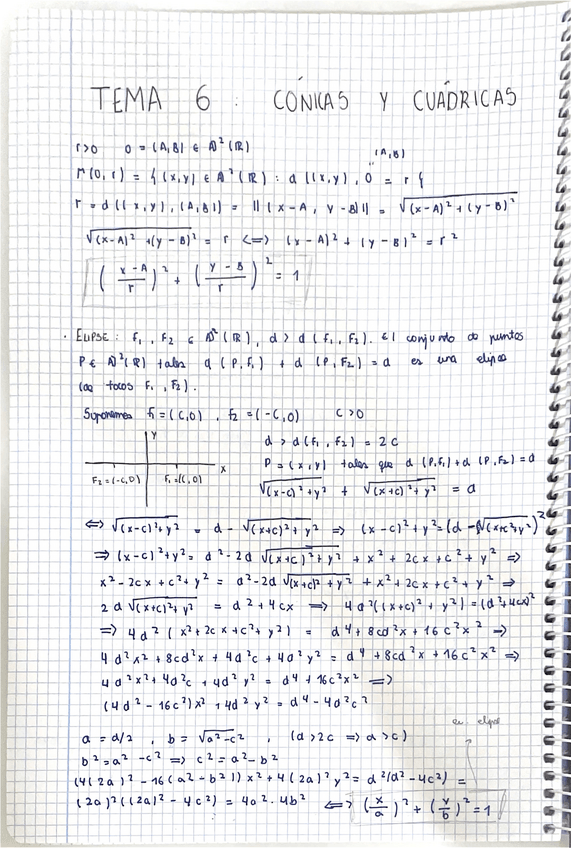 TEMA 6: CÓNICAS Y CUÁDRICAS
r>0 0 = (A,B) ∈ A²(ℝ)
(A,B)
"
Γ(0,r) = { (x,y) ∈ A²(ℝ) : d ((x,y), 0 = r }
r = d((x,y), (A,B)) = ||(x-A, y-B)|| = √((x-A)² + (y-B)²)
√((x-A)² + (y-B)²) = r <=> (x-A)² + (y-B)² = r²
((x-A)/r)² + ((y-B)/r)² = 1
· ELIPSE: F₁, F₂ ∈ A²(ℝ), d > d(F₁, F₂). El conjunto de puntos
P ∈ A²(ℝ) tales d(P,F₁) + d(P,F₂) = d es una elipse
(de focos F₁, F₂).
Suponemos F₁ = (C,0), F₂ = (-C,0) C>0
y
x
F₂=(-C,0) F₁=(C,0)
d > d(F₁, F₂) = 2c
P = (x,y) tales que d(P,F₁) + d(P,F₂) = d
√((x-c)² + y²) + √((x+c)² + y²) = d
<=> √((x-c)² + y²) = d - √((x+c)² + y²) => (x-c)² + y² = (d - √((x+c)², y²))²
=> (x-c)² + y² = d² - 2d √((x+c)² + y²) + x² + 2cx + c² + y² =>
x² - 2cx + c² + y² = d² - 2d √((x+c)² + y²) + x² + 2cx + c² + y² =>
2d √((x+c)² + y²) = d² + 4cx => 4d²((x+c)² + y²) = (d² + 4cx)²
=> 4d² (x² + 2cx + c² + y²) = d⁴ + 8cd²x + 16c²x² =>
4d²x² + 8cd²x + 4d²c + 4d²y² = d⁴ + 8cd²x + 16c²x² =>
4d²x² + 4d²c + 4d²y² = d⁴ + 16c²x² =>
(4d² - 16c²)x² + 4d²y² = d⁴ - 4d²c²
a = d/2, b = √(a² - c²), (d > 2c => a > c)
b² = a² - c² => c² = a² - b²
(4(2a)² - 16(a² - b²))x² + 4(2a)²y² = d²(d² - 4c²) =
(2a)²((2a)² - 4c²) = 4a² · 4b² <=> (x/a)² + (y/b)² = 1